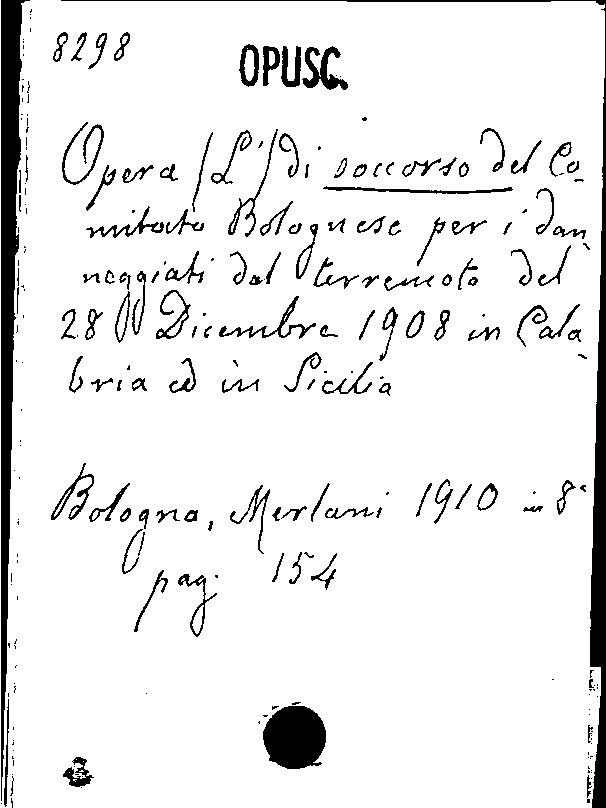 8298
OPUSC.
Opera (L') di soccorso del Co-
mitato Bolognese per i dan-
neggiati dal terremoto del
28 Dicembre 1908 in Cala-
bria ed in Sicilia
Bologna, Merlani 1910 in 8°
pag. 154